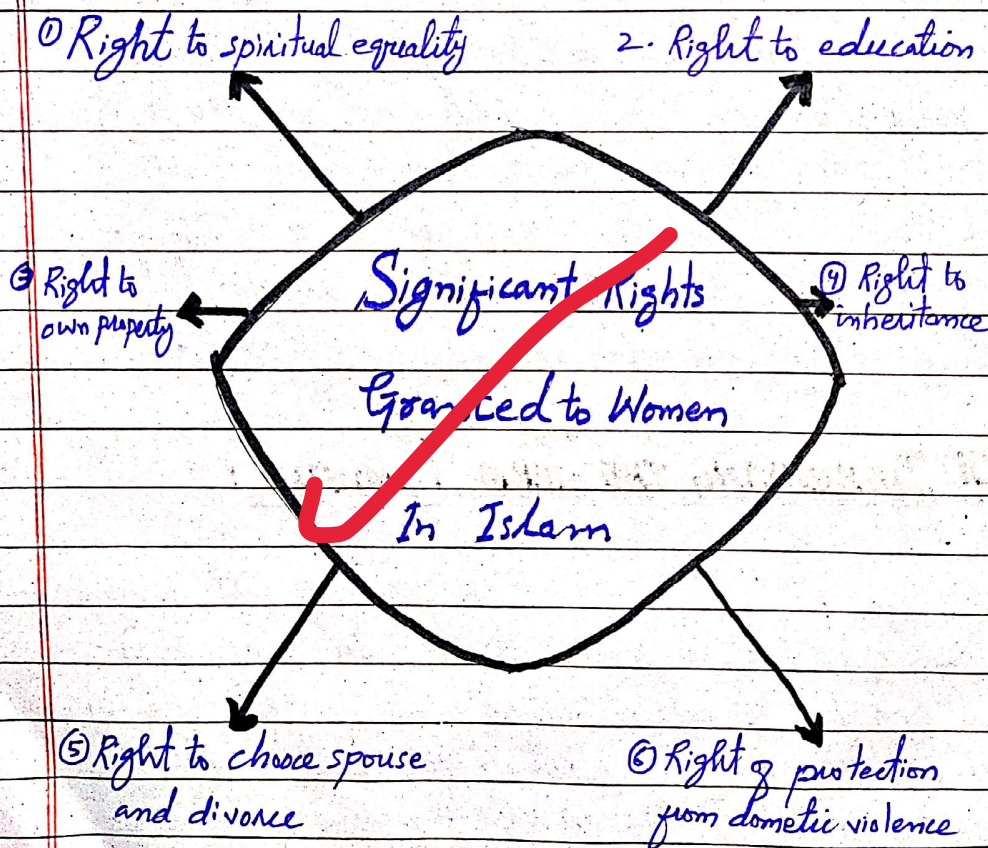 ① Right to spiritual equality
2. Right to education
③ Right to
own property
④ Right to
inheritance
Significant Rights
Granted to Women
In Islam
⑤ Right to choose spouse
and divorce
⑥ Right of protection
from dometic violence